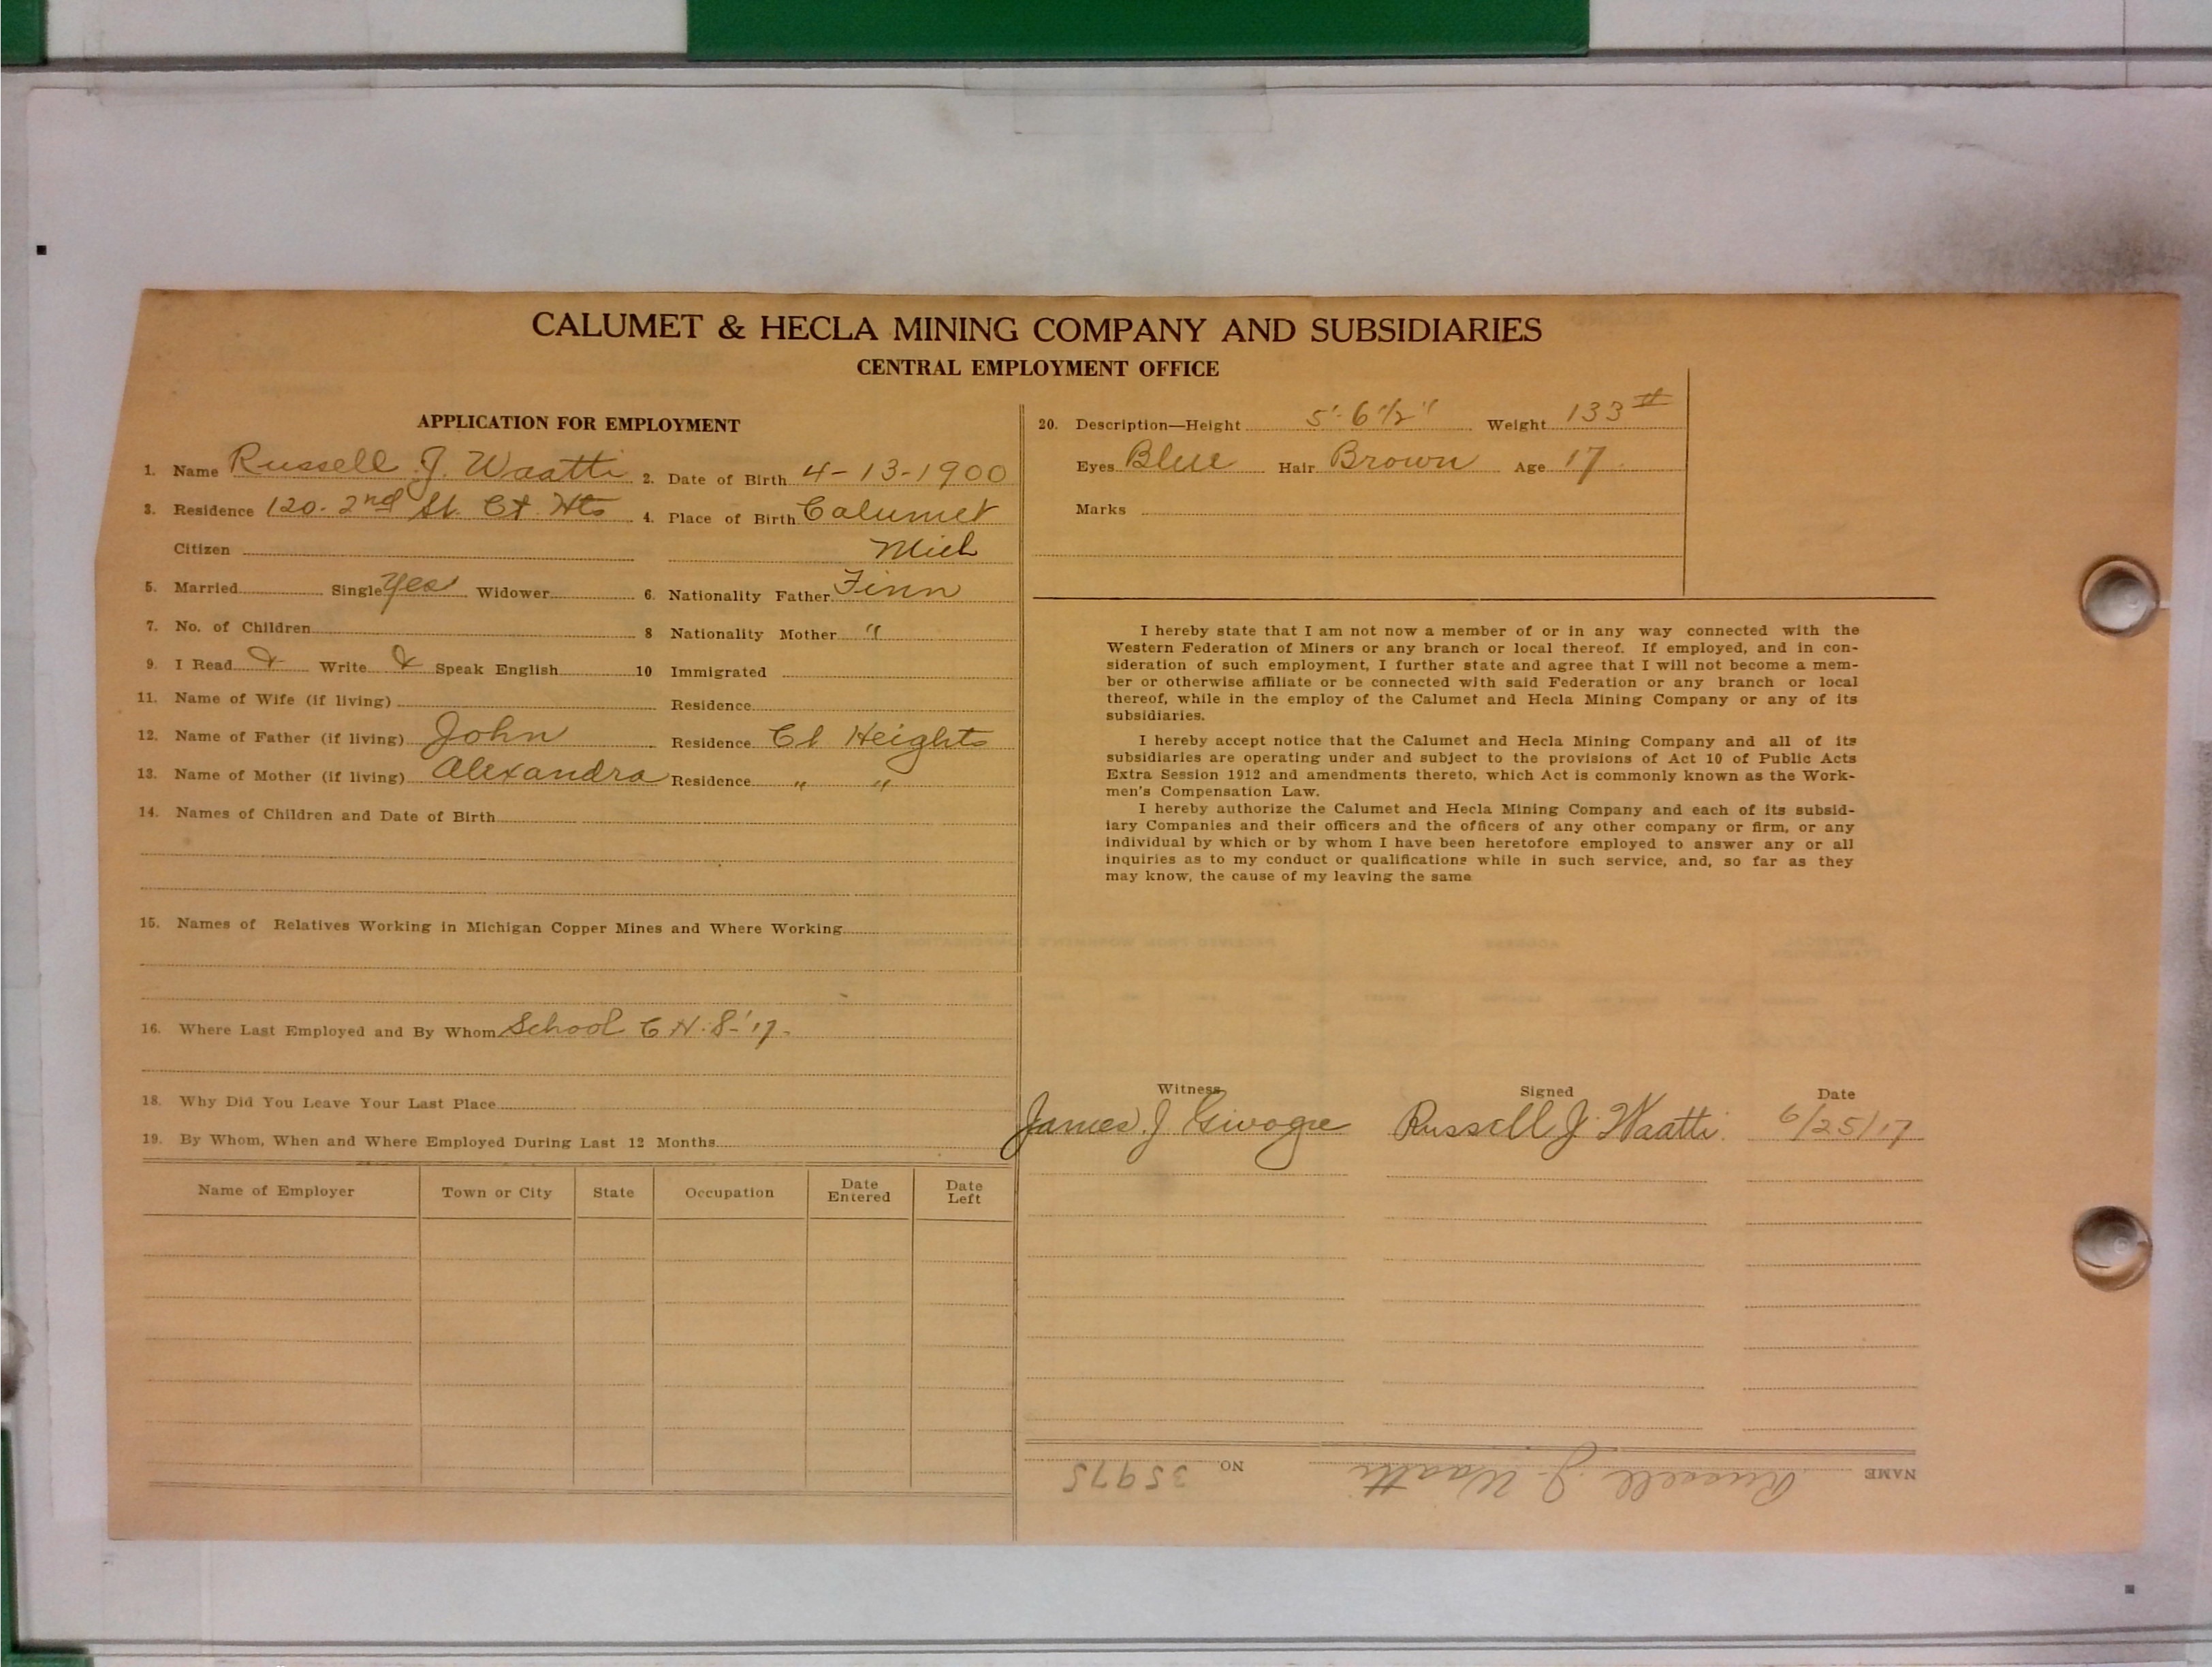 CALUMET & HECLA MINING COMPANY AND SUBSIDIARIES
CENTRAL EMPLOYMENT OFFICE
APPLICATION FOR EMPLOYMENT
1. Name Russell J. Waatti 2. Date of Birth 4-13-1900
3. Residence 120. 2nd St. Ct. Hts 4. Place of Birth Calumet
Citizen Mich
5. Married Single Yes Widower 6. Nationality Father Finn
7. No. of Children 8 Nationality Mother "
9. I Read Write Speak English 10 Immigrated
11. Name of Wife (if living) Residence
12. Name of Father (if living) John Residence Ct Heights
13. Name of Mother (if living) Alexandra Residence " "
14. Names of Children and Date of Birth
15. Names of Relatives Working in Michigan Copper Mines and Where Working
16. Where Last Employed and By Whom School C H. S-'17-
18. Why Did You Leave Your Last Place
19. By Whom, When and Where Employed During Last 12 Months
Name of Employer Town or City State Occupation Date Entered Date Left
20. Description—Height 5'-6 1/2" Weight 133 #
Eyes Blue Hair Brown Age 17
Marks
I hereby state that I am not now a member of or in any way connected with the
Western Federation of Miners or any branch or local thereof. If employed, and in con-
sideration of such employment, I further state and agree that I will not become a mem-
ber or otherwise affiliate or be connected with said Federation or any branch or local
thereof, while in the employ of the Calumet and Hecla Mining Company or any of its
subsidiaries.
I hereby accept notice that the Calumet and Hecla Mining Company and all of its
subsidiaries are operating under and subject to the provisions of Act 10 of Public Acts
Extra Session 1912 and amendments thereto, which Act is commonly known as the Work-
men's Compensation Law.
I hereby authorize the Calumet and Hecla Mining Company and each of its subsid-
iary Companies and their officers and the officers of any other company or firm, or any
individual by which or by whom I have been heretofore employed to answer any or all
inquiries as to my conduct or qualifications while in such service, and, so far as they
may know, the cause of my leaving the same
Witness Signed Date
James J Russell J. Waatti. 6/25/17
NAME Russell J. Waatti NO. 35975